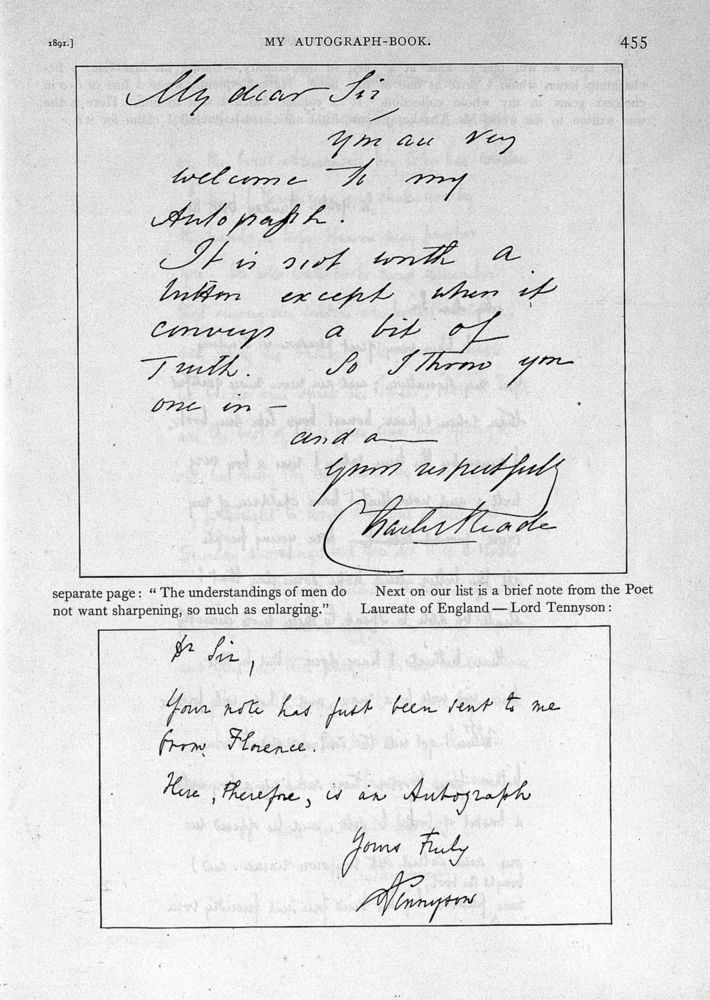 1891.] MY AUTOGRAPH-BOOK. 455
My dear Sir,
You are very
welcome to my
Autograph.
It is not worth a
button except when it
conveys a bit of
Truth. So I throw you
one in —
and am
Yours respectfully
Charles Reade
separate page: " The understandings of men do
not want sharpening, so much as enlarging."
Next on our list is a brief note from the Poet
Laureate of England — Lord Tennyson:
Dr Sir,
Your note has just been sent to me
from Florence.
Here, therefore, is an Autograph
Yours truly
ATennyson